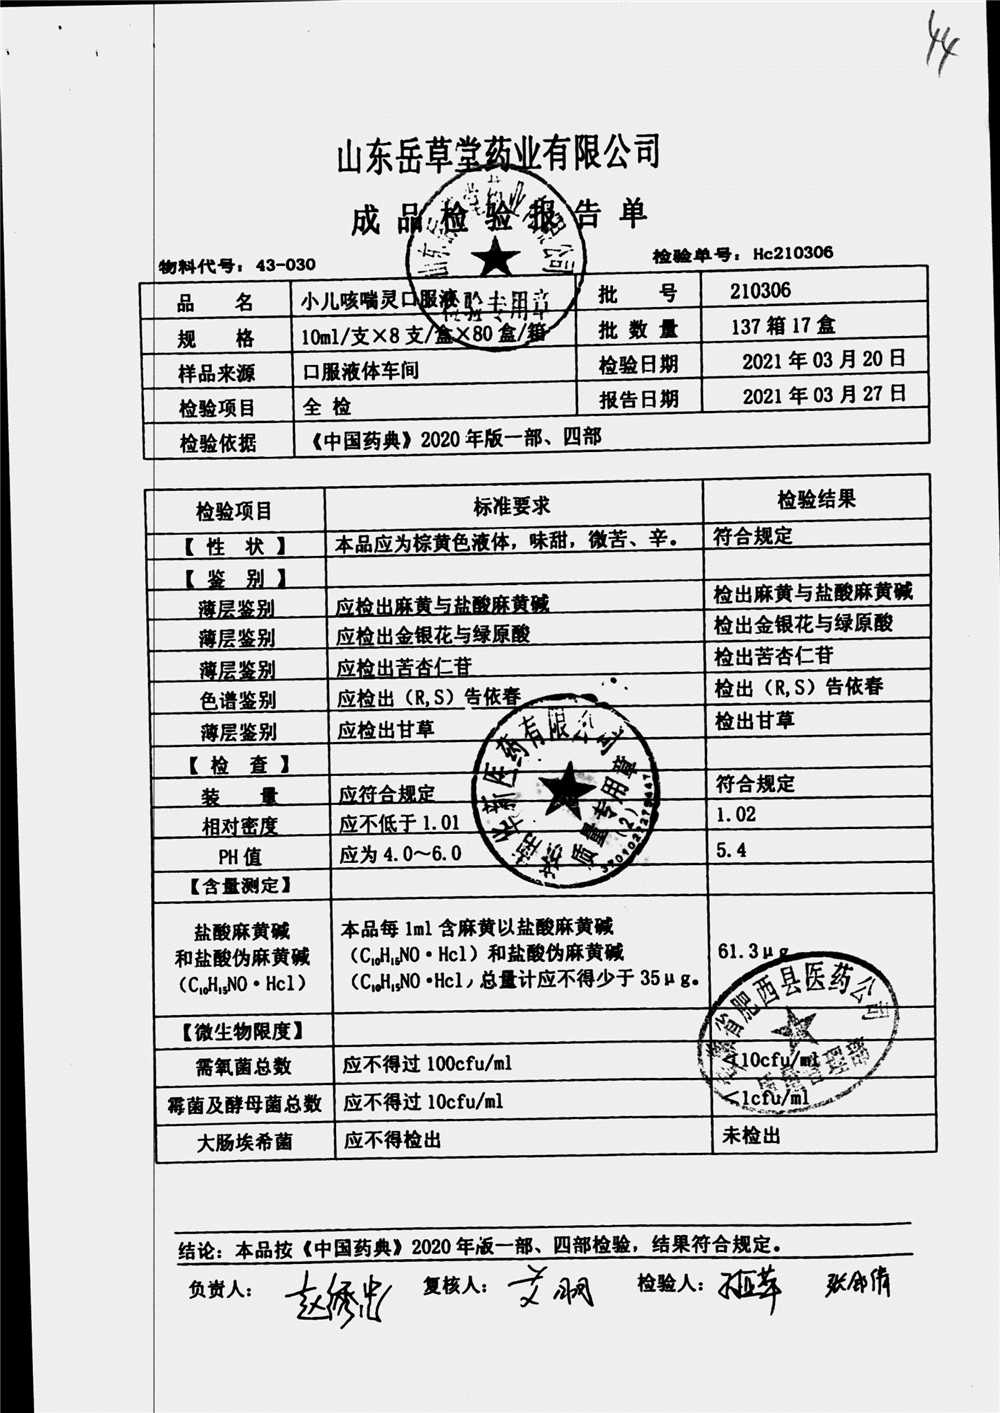 44
山东岳草堂药业有限公司
成品检验报告单
物料代号：43-030 检验单号：Hc210306
品 名 小儿咳喘灵口服液 批 号 210306
规 格 10ml/支×8支/盒×80盒/箱 批 数 量 137箱17盒
样品来源 口服液体车间 检验日期 2021年03月20日
检验项目 全 检 报告日期 2021年03月27日
检验依据 《中国药典》2020年版一部、四部
检验专用章
检验项目 标准要求 检验结果
【 性 状 】 本品应为棕黄色液体，味甜，微苦、辛。 符合规定
【 鉴 别 】
薄层鉴别 应检出麻黄与盐酸麻黄碱 检出麻黄与盐酸麻黄碱
薄层鉴别 应检出金银花与绿原酸 检出金银花与绿原酸
薄层鉴别 应检出苦杏仁苷 检出苦杏仁苷
色谱鉴别 应检出（R,S）告依春 检出（R,S）告依春
薄层鉴别 应检出甘草 检出甘草
【 检 查 】
装 量 应符合规定 符合规定
相对密度 应不低于1.01 1.02
PH值 应为4.0～6.0 5.4
【含量测定】
盐酸麻黄碱
和盐酸伪麻黄碱
（C₁₀H₁₅NO·Hcl）
本品每1ml含麻黄以盐酸麻黄碱
（C₁₀H₁₅NO·Hcl）和盐酸伪麻黄碱
（C₁₀H₁₅NO·Hcl）总量计应不得少于35μg。
61.3μg
【微生物限度】
需氧菌总数 应不得过100cfu/ml <10cfu/ml
霉菌及酵母菌总数 应不得过10cfu/ml <1cfu/ml
大肠埃希菌 应不得检出 未检出
医药有限公司
质量专用章
(2)
省肥西县医药公司
质量管理部
结论：本品按《中国药典》2020年版一部、四部检验，结果符合规定。
负责人： 复核人： 检验人：